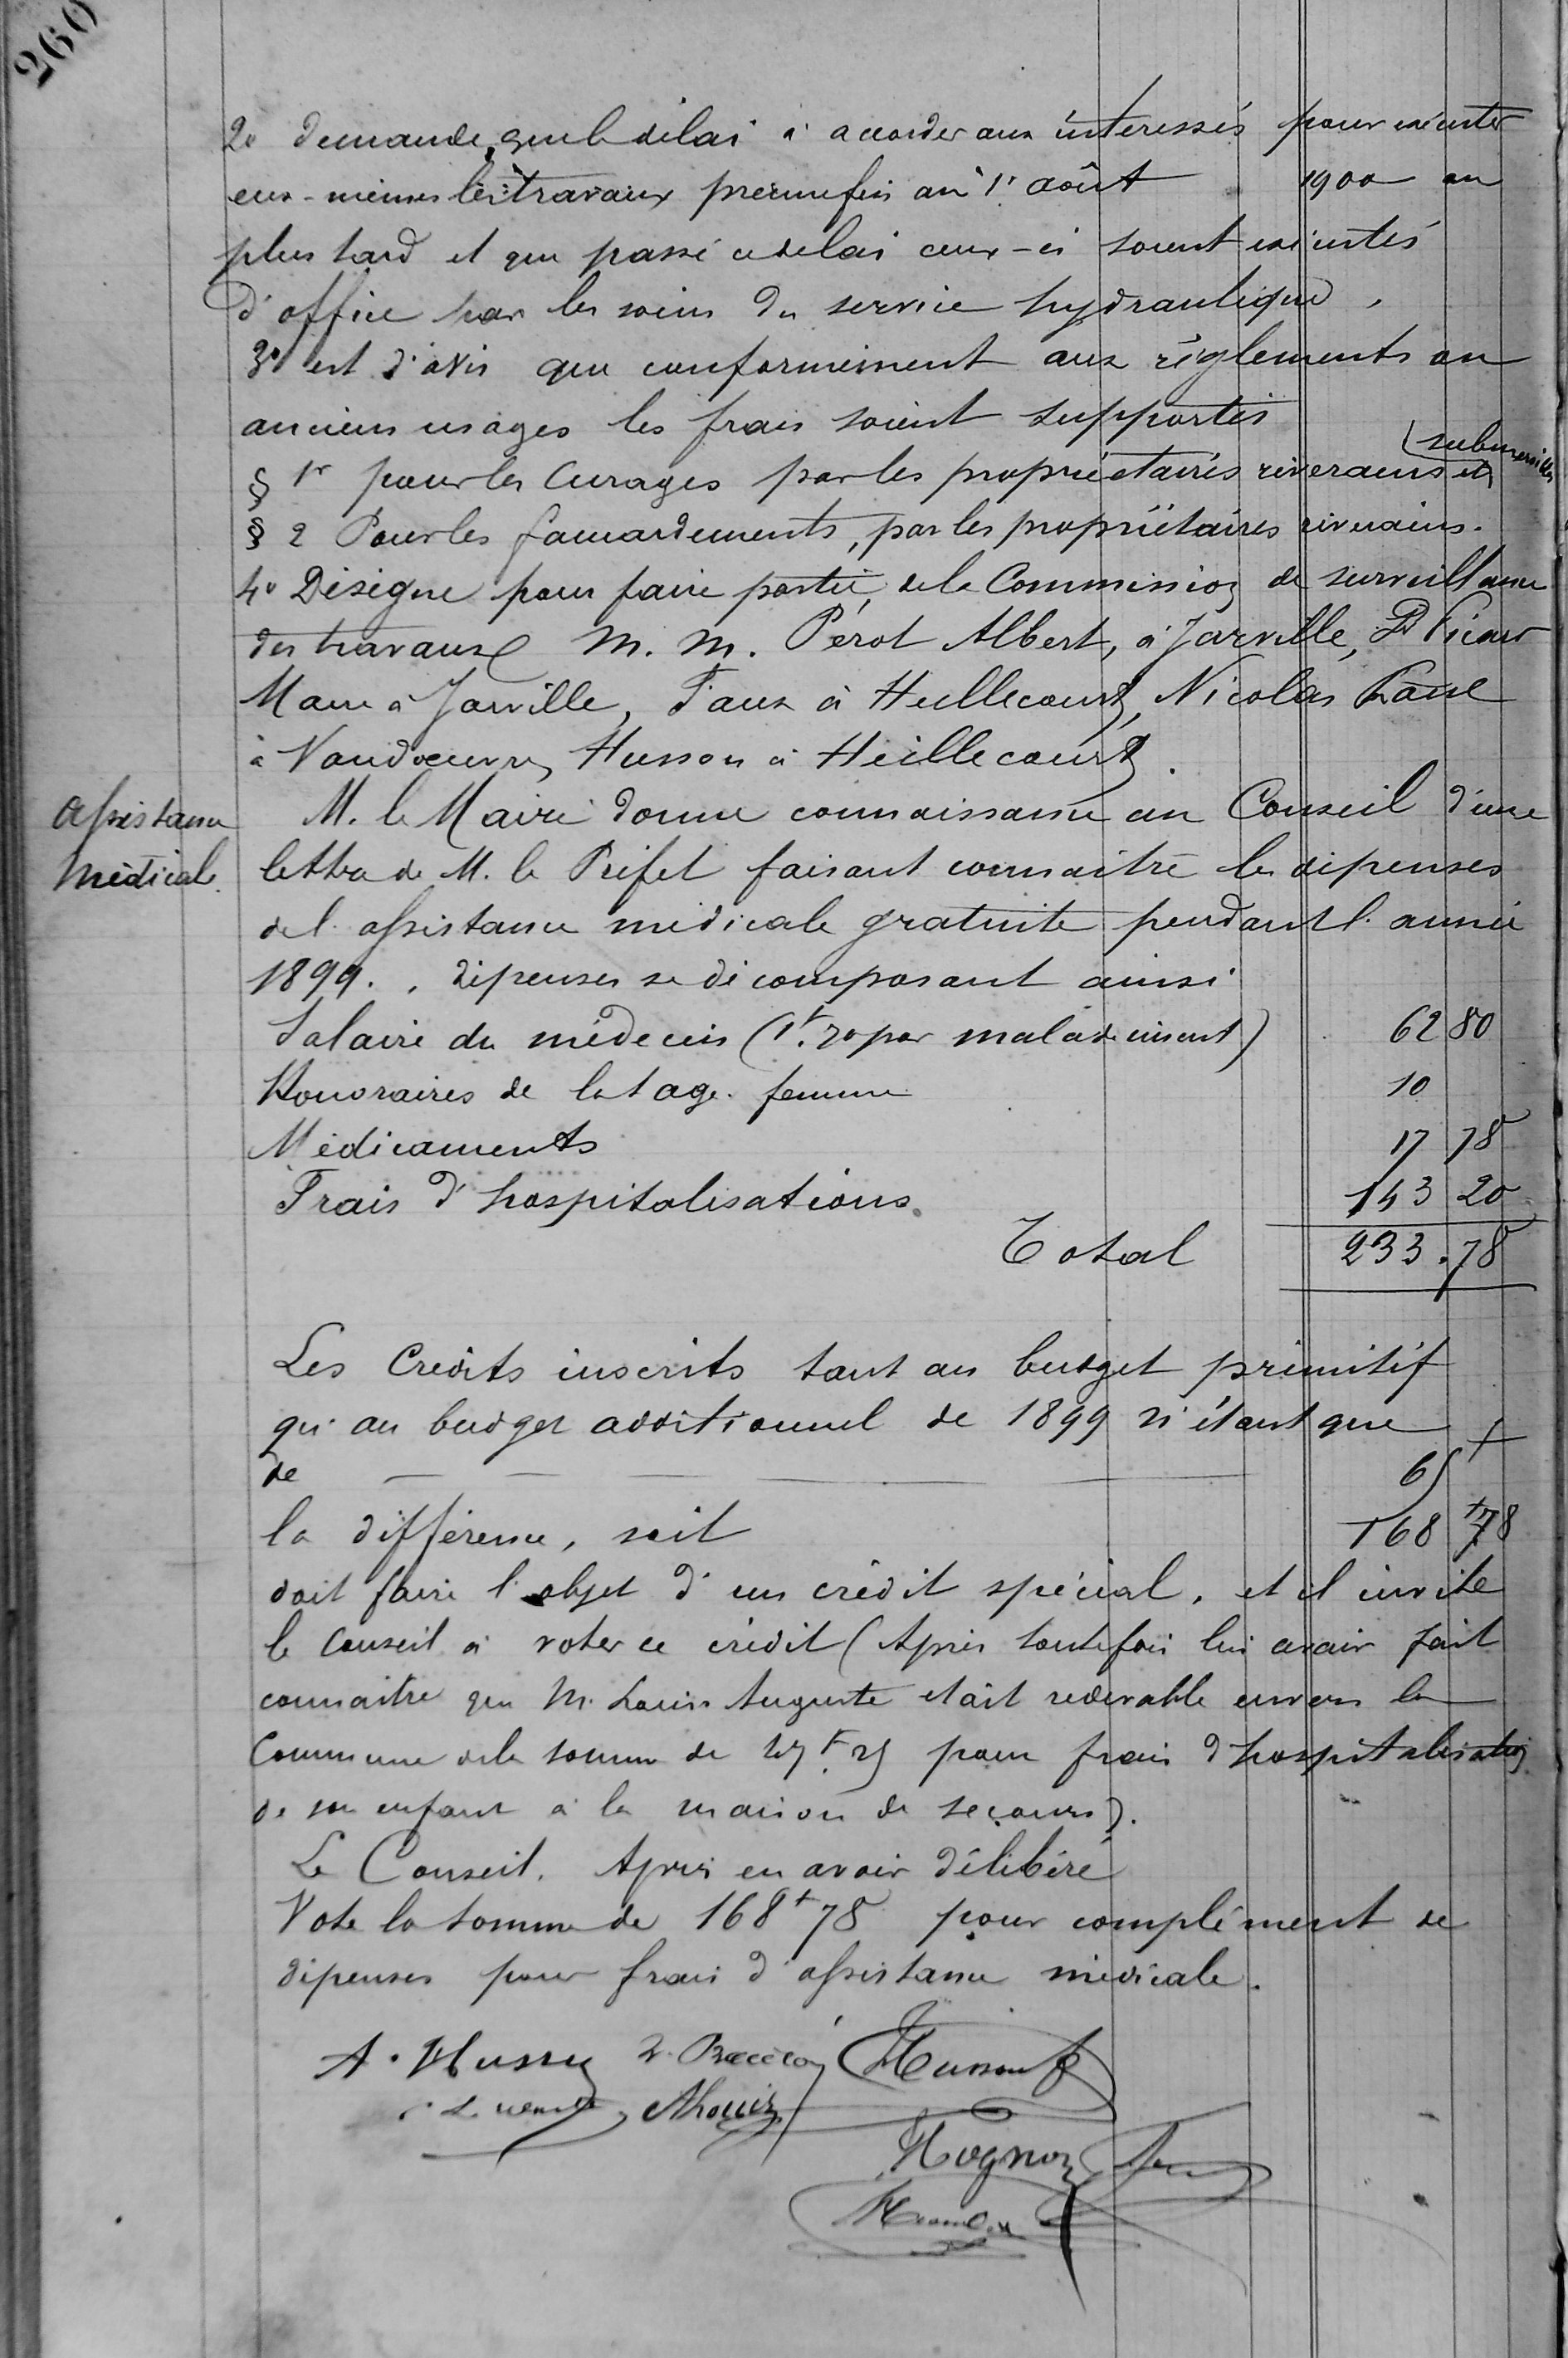 260
2° demande que le délai à accorder aux intéressés pour exécuter
eux-mêmes les travaux prenne fin au 1r août 1900 au
plus tard et que passé ce délai ceux-ci soient exécutés
d'office par les soins du service hydraulique,
3° est d'avis que conformément aux règlements ou
anciens usages les frais soient supportés
§ 1r pour les Curages par les propriétaires riverains et submersibles
§ 2 Pour les faucardements, par les propriétaires riverains.
4° Désigne pour faire partie de la Commission de surveillance
des travaux M. M. Pérot Albert, à Jarville, Dr Picard
Maire à Jarville, Faux à Heillecourt, Nicolas
à Vandœuvre, Husson à Heillecourt.
Assistance
Médicale.
M. le Maire donne connaissance au Conseil d'une
lettre de M. le Préfet faisant connaître les dépenses
de l'assistance médicale gratuite pendant l'année
1899. , dépenses se décomposant ainsi
Salaire du médecin (1f.20 par malade inscrit) 62 80
Honoraires de la sage-femme 10
Médicaments 17 78
Frais d'hospitalisations. 143 20
Total 233.78
Les Crédits inscrits tant au budget primitif
qu'au budget additionnel de 1899 n'étant que
de 65 f
la différence, soit 168 f 78
doit faire l'objet d'un crédit spécial, et il invite
le Conseil à voter ce crédit (Après toutefois lui avoir fait
connaître que M. Louis Auguste était redevable envers la
Commune de la somme de f 25 pour frais d'hospitalisation
de son enfant à la maison de secours).
Le Conseil. Après en avoir délibéré
Vote la somme de 168f78 pour complément de
dépenses pour frais d'assistance médicale.
A. Husson Husson
Alouis
Mognon